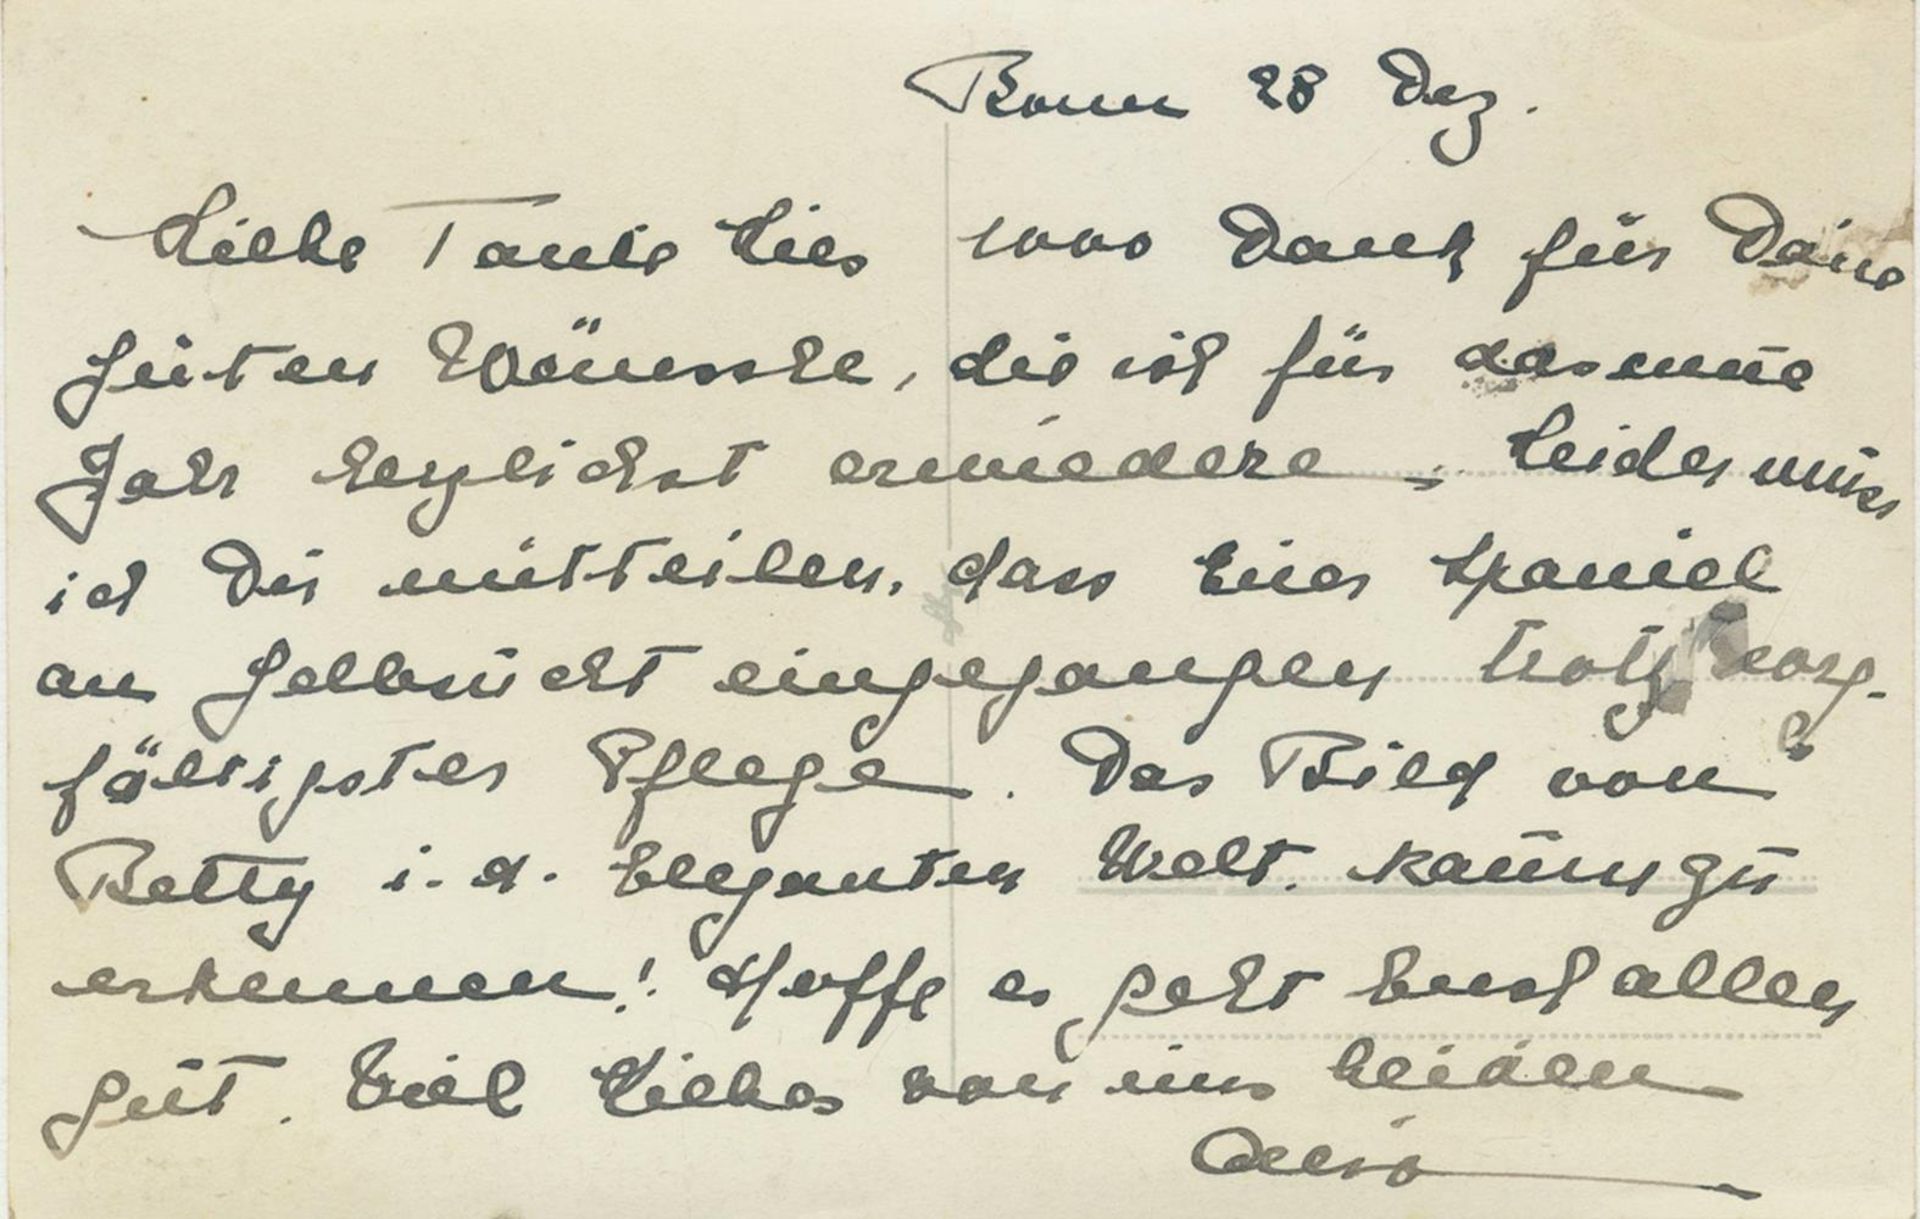 Bonn 28 Dez.
Liebe Tante Lies 1000 Dank für Deine
guten Wünsche, die ich für das neue
Jahr herzlichst erwiedere. Leider muss
ich Dir mitteilen, dass Euer Spaniel
an Gelbsucht eingegangen trotz sorg-
fältigster Pflege. Das Bild von
Betty i. d. Eleganten Welt. kaum zu
erkennen! Hoffe es geht Euch allen
gut. Viel Liebes von uns beiden